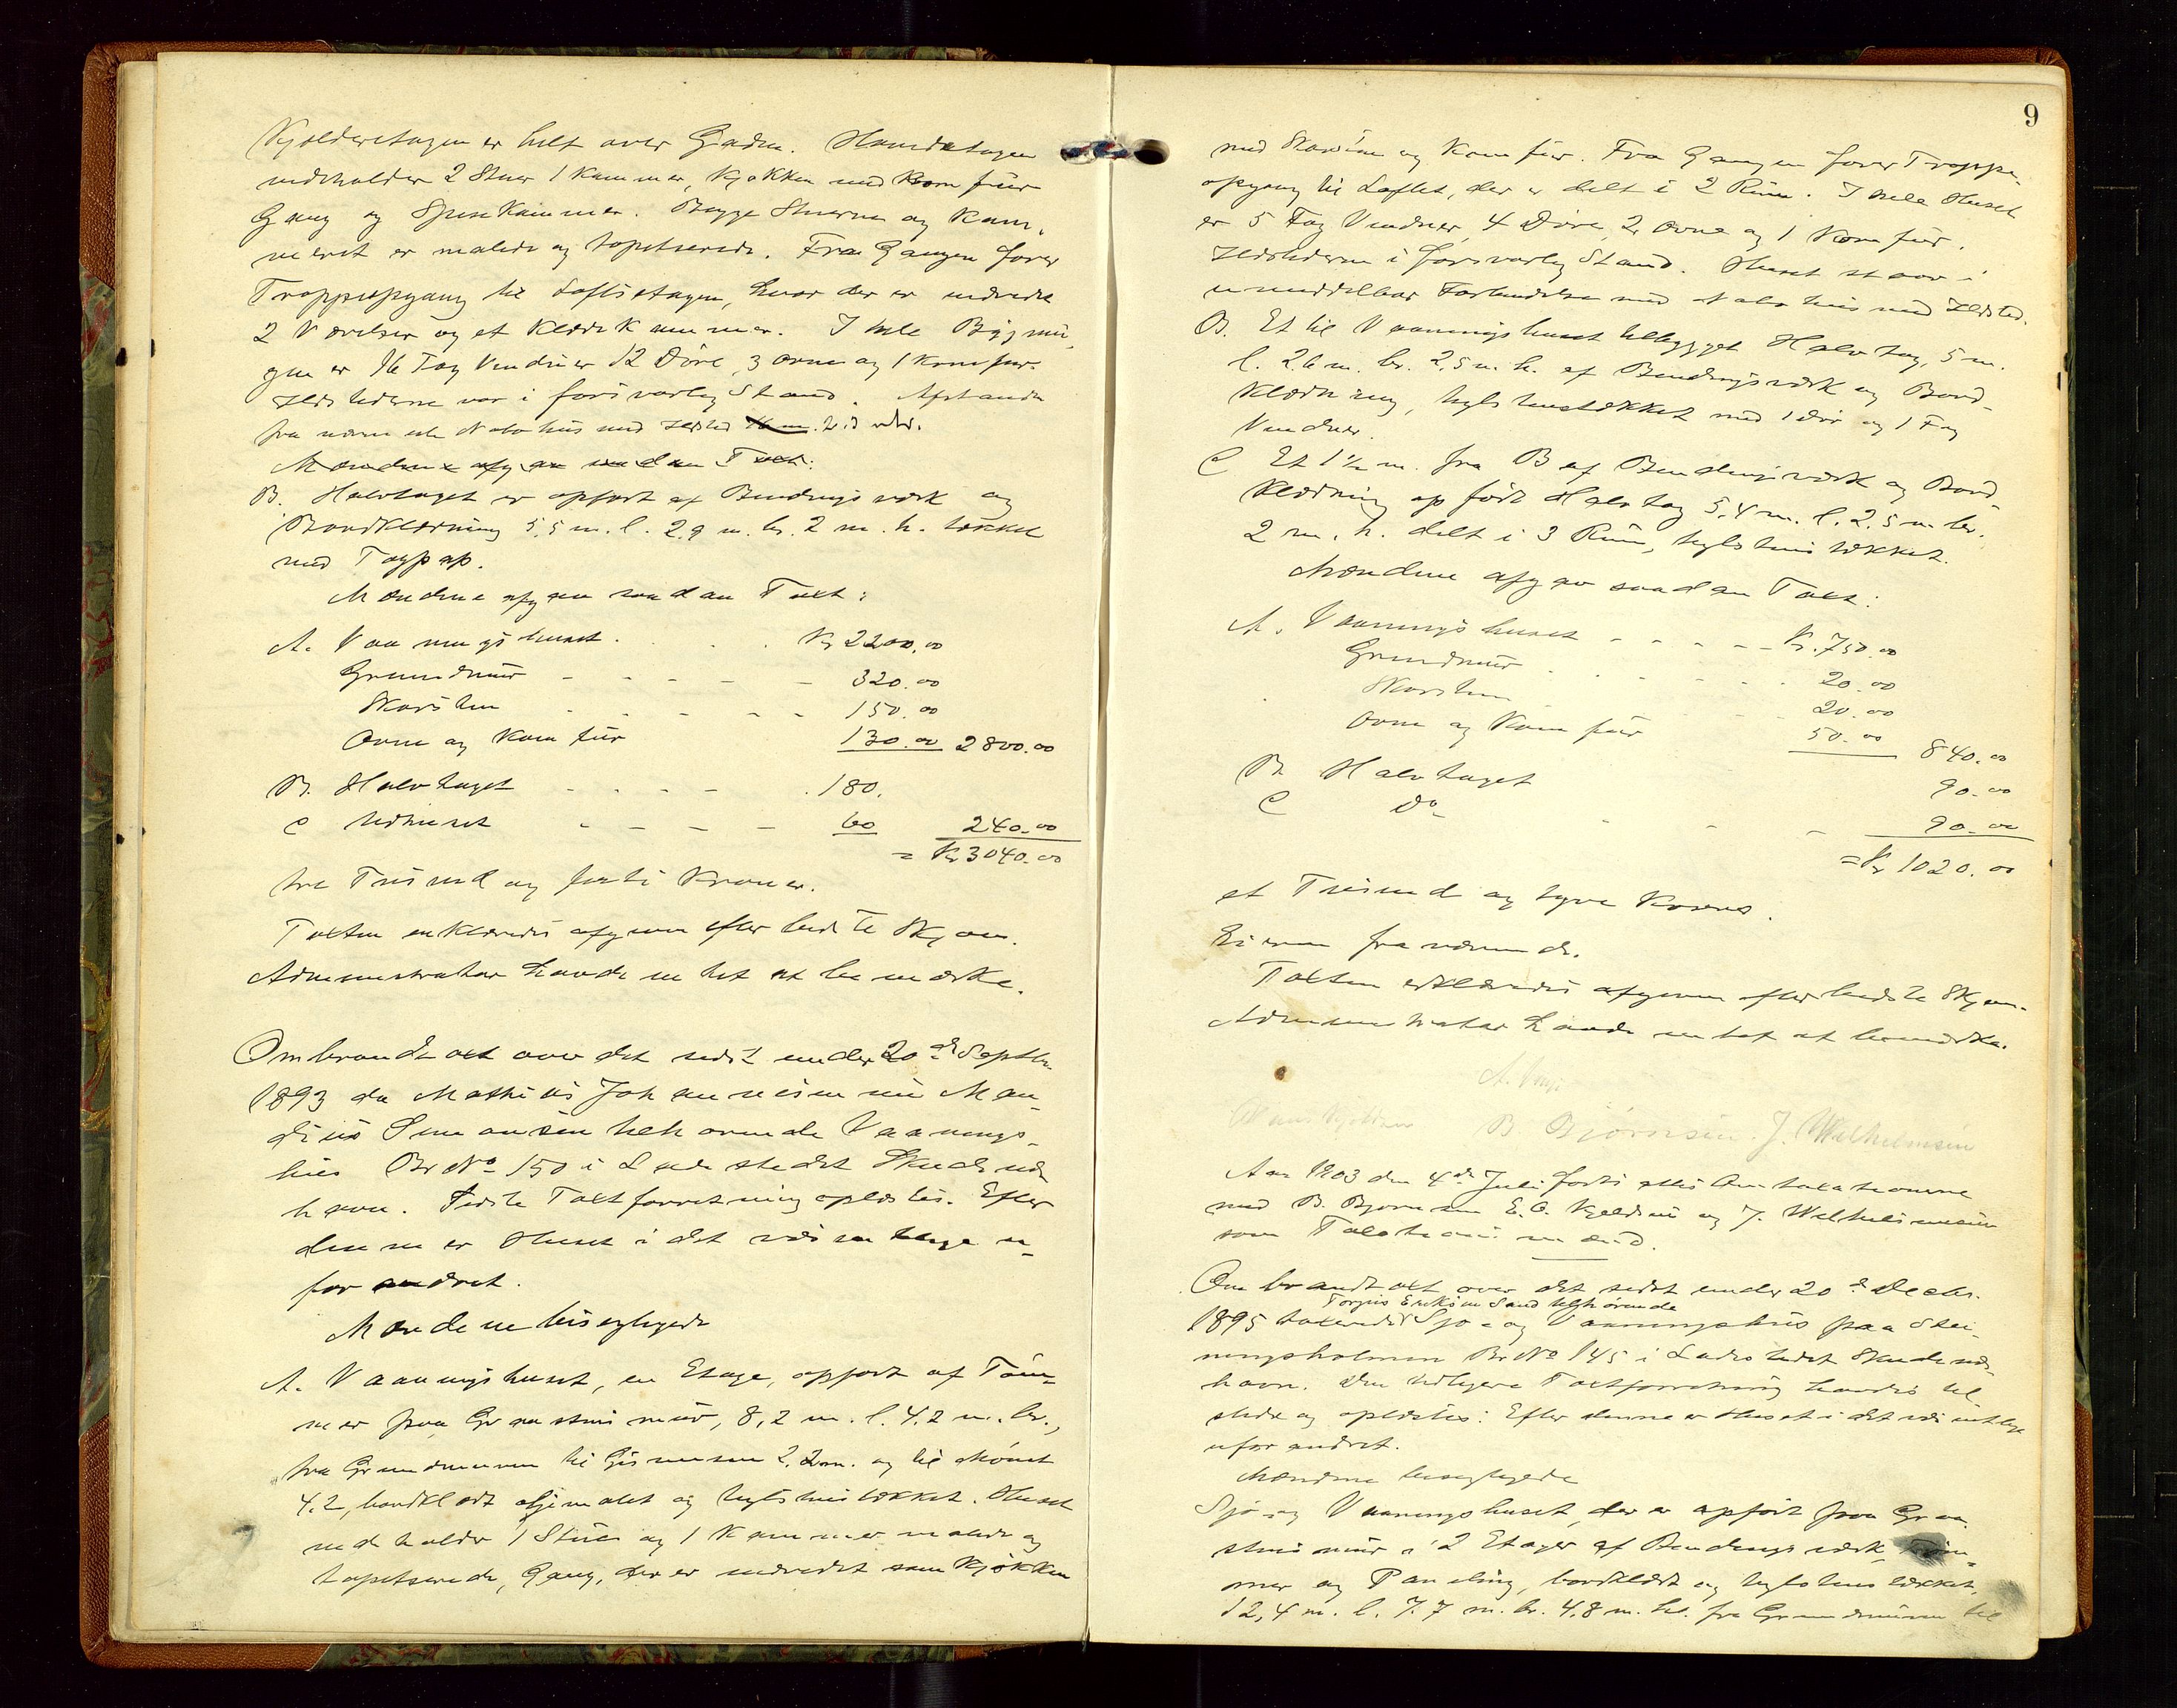 Kjelderetagen er helt over Gaden. Hovedetagen
indeholder 2 Stuer 1 Kammer, Kjøkken med Komfur
Gang og Spisekammer. Begge Stuerne og Kam-
meret er malede og tapetserede. Fra Gangen fører
Trappeopgang til Loftsetagen, hvor der er indredet
2 Værelser og et Klædekammer. I hele Bygnin-
gen er 16 Fag Vinduer 12 Døre, 3 Ovne og 1 Komfur.
Ildstederne var i forsvarlig Stand. Afstanden
fra nærmeste Nabohus med Ildsted
Mændene afgav saadan Taxt:
B. Halvtaget er opført af Bindingsværk og
Bordklædning 5,5 m. l. 2,9 m. br. 2 m. h. tækket
med Tagpap.
Mændene afgav saadan Taxt:
A. Vaaningshuset . . . Kr 2200.00
Grundmur - - - - - 320.00
Skorsten . - - - 150.00
Ovne og Komfur 130.00 2800.00
B. Halvtaget - - - - 180.
C Udhuset - - - - 60 240.00
= Kr 3040.00
tre Tusind og forti Kroner.
Taxten erklæredes afgiven efter bedste Skjøn.
Administrator havde intet at bemærke.
Ombrandtaxt over det sidst under 20de Septbr.
1893 da Mathias Johannesen nu Man-
dius Simonsen tilhørende Vaanings-
hus Br No 150 i Ladestedet Skudenes-
havn. Sidste Taxtforretning oplæstes. Efter
denne er Huset i det væsentlige u-
forandret.
Mændene besigtigede
A. Vaaningshuset, en Etage, opført af Tøm-
mer paa Graastensmur, 8,2 m. l. 4,2 m. br.,
fra Grundmuren til Gesimsen 2,2 m. og til Mønet
4,2, bordklædt oljemalet og teglstenstækket. Huset
indeholder 1 Stue og 1 Kammer malede og
tapetserede, Gang, der er indredet som Kjøkken
9
med Skorsten og Komfur. Fra Gangen fører Trappe-
opgang til Loftet, der er delt i 2 Rum. I hele Huset
er 5 Fag Vinduer, 4 Døre, 2 Ovne og 1 Komfur.
Ildstederne i forsvarlig Stand. Huset staar i
umiddelbar Forbindelse med Nabohus med Ildsted.
B. Et til Vaaningshuset tilbygget Halvtag, 5 m.
l. 2,6 m. br. 2,5 m. h. af Bindingsværk og Bord-
klædning, teglstenstækket med 1 Dør og 1 Fag
Vinduer.
C Et 1½ m. fra B af Bindingsværk og Bord
klædning opført Halvtag 5,4 m. l. 2,5 m. br.
2 m. h. delt i 3 Rum, teglstenstækket.
Mændene afgav saadan Taxt:
A. Vaaningshuset - - - - - Kr. 750.00
Grundmur . . . . . 20.00
Skorsten 20.00
Ovne og Komfur 50.00 840.00
B. Halvtaget 90.00
C do - - - 90.00
= Kr 1020.00
et Tusind og tyve Kroner.
Eieren fraværende.
Taxten erklæredes afgiven efter bedste Skjøn.
Administrator havde intet at bemærke.
B Bjørnsen. J. Wilhelmsen
Aar 1903 den 4de Juli fortsattes Omtaxationerne
med B. Bjørnsen E. O. Kjeldsen og J. Wilhelmsen
som Taxtationsmænd.
Ombrandtaxt over det sidst under 20de Decbr.
Torgius Eriksen Sand tilhørende
1895 taxerede Sjø- og Vaaningshus paa Stei-
ningsholmen Br No 145 i Ladestedet Skudenes-
havn. Den tidligere Taxtforretning havdes til-
stede og oplæstes: Efter denne er Huset i det væsentlige
uforandret.
Mændene besigtigede
Sjø- og Vaaningshuset, der er opført paa Graa-
stensmur i 2 Etager af Bindingsværk, Tøm-
mer og Paneling, bordklædt og teglstenstækket,
12,4 m. l. 7.7 m. br. 4,8 m. h. fra Grundmuren til